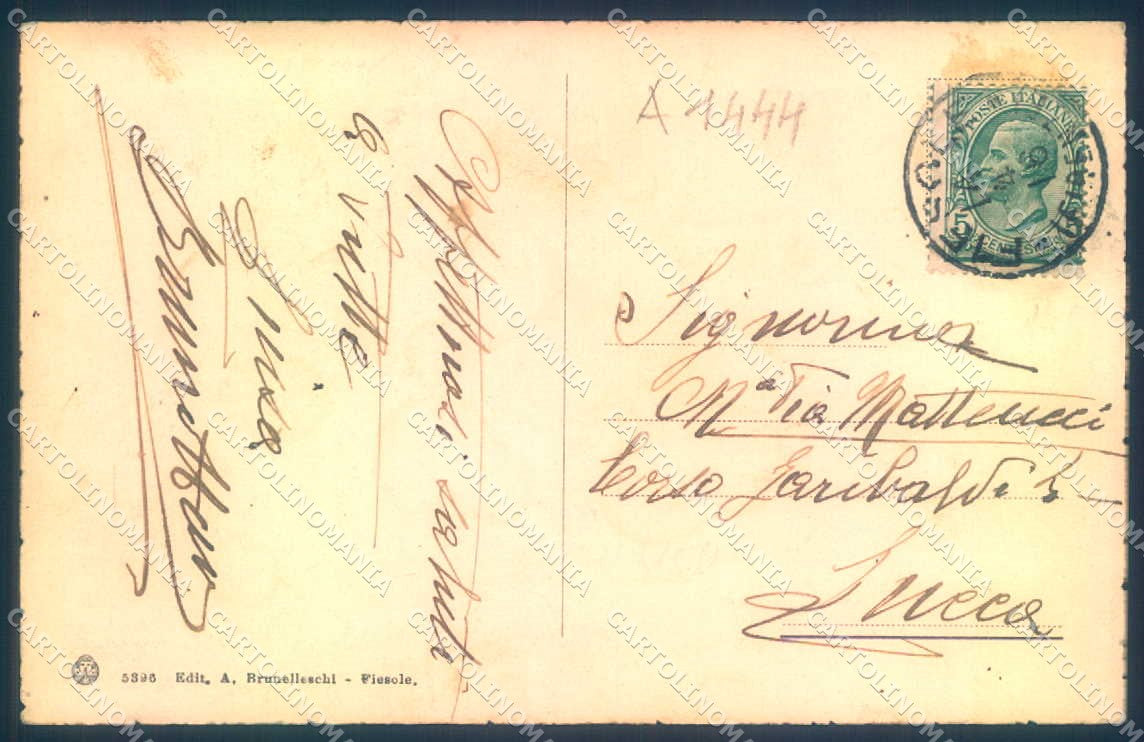 A 1444
POSTE ITALIANE
5
CENTESIMI
Affettuosi saluti
a tutte
Signorina
Mª Pia Matteucci
Corso Garibaldi 5
Lucca
5396 Edit. A. Brunelleschi - Fiesole.
CARTOLINOMANIA